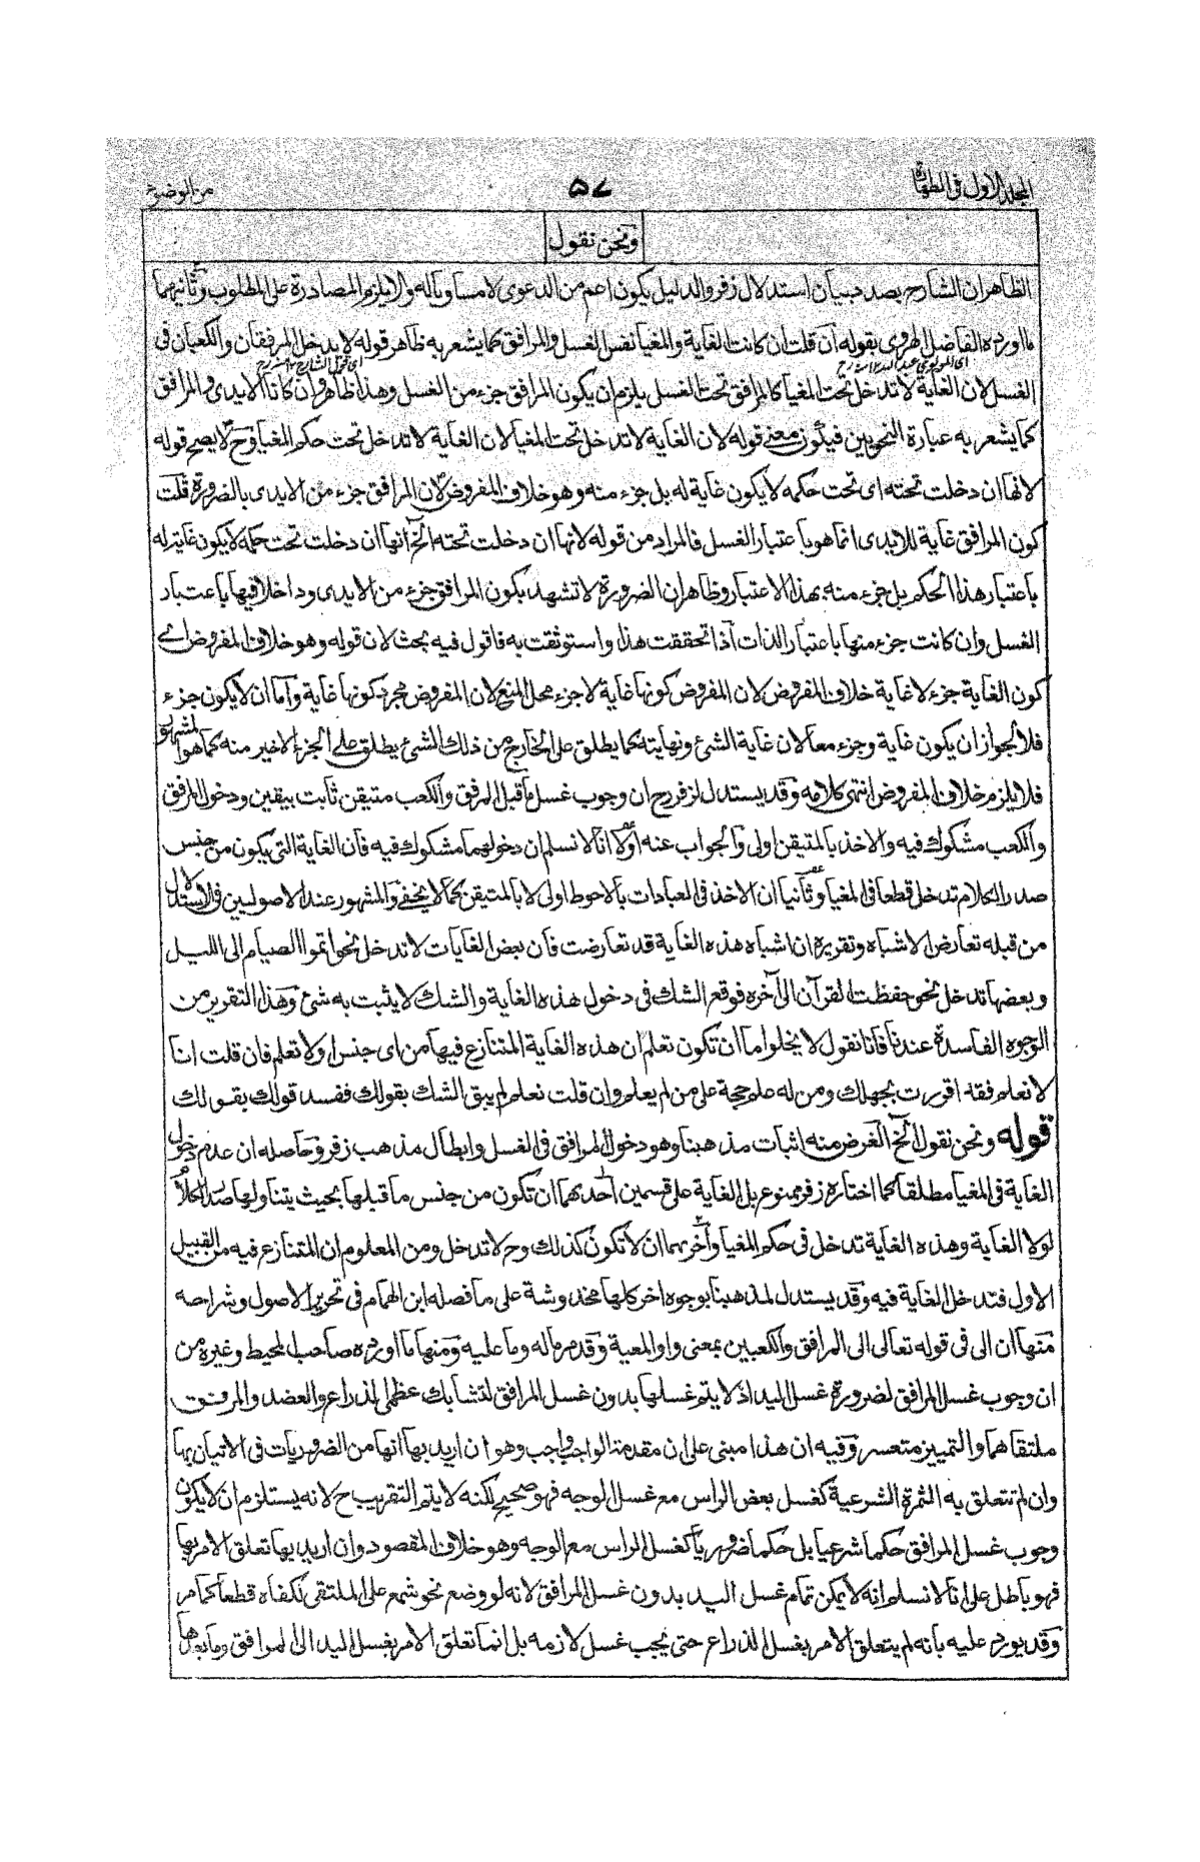 المجلد الاول فى الطهارة
٥٧
من الوضوء
ونحن نقول
الظاهر ان الشارح بصدد بيان استدلال زفر والدليل يكون اعم من الدعوى لا مساويا له والا يلزم المصادرة على المطلوب وثانيهما
ما اورده الفاضل الهروى بقوله ان قلت ان كانت الغاية والمغيا نفس الغسل والمرافق كما يشعر به ظاهر قوله لا يدخل المرفقان والكعبان فى
الغسل لان الغاية لا تدخل تحت المغيا كالمرافق تحت الغسل يلزم ان يكون المرافق جزء من الغسل وهذا ظاهر وان كانا الايدى والمرافق
كما يشعر به عبارة النحويين فيكون معنى قوله لان الغاية لا تدخل تحت المغيا لان الغاية لا تدخل تحت حكم المغيا وح لا يصح قوله
لانها ان دخلت تحته اى تحت حكمه لا يكون غاية له بل جزء منه وهو خلاف المفروض لان المرافق جزء من الايدى بالضرورة قلت
كون المرافق غاية للايدى انما هو باعتبار الغسل فالمراد من قوله لانها ان دخلت تحته الخ انها ان دخلت تحت حكمه لا يكون غاية له
باعتبار هذا الحكم بل جزء منه بهذا الاعتبار وظاهر ان الضرورة لا تشهد بكون المرافق جزء من الايدى وداخلا فيها باعتبار
الغسل وان كانت جزء منها باعتبار الذات اذا تحققت هذا واستوثقت به فاقول فيه بحث لان قوله وهو خلاف المفروض اى
كون الغاية جزء لا غاية خلاف المفروض لان المفروض كونها غاية لا جزء محل المنع لان المفروض مجرد كونها غاية واما ان لا يكون جزء
فلا لجواز ان يكون غاية وجزء معا لان غاية الشئ ونهايته كما يطلق على الخارج من ذلك الشئ يطلق على الجزء الاخير منه كما هو المشهور
فلا يلزم خلاف المفروض انتهى كلامه وقد يستدل لزفر رح ان وجوب غسل ما قبل المرفق والكعب متيقن ثابت بيقين ودخول المرفق
والكعب مشكوك فيه والاخذ بالمتيقن اولى والجواب عنه اولا انا لا نسلم ان دخولهما مشكوك فيه فان الغاية التى يكون من جنس
صدر الكلام تدخل قطعا فى المغيا وثانيا ان الاخذ فى العبادات بالاحوط اولى لا بالمتيقن كما لا يخفى والمشهور عند الاصوليين فى الاستدلال
من قبله تعارض الاشباه وتقريره ان اشباه هذه الغاية قد تعارضت فان بعض الغايات لا تدخل نحو اتموا الصيام الى الليل
وبعضها تدخل نحو حفظت القرآن الى آخره فوقع الشك فى دخول هذه الغاية والشك لا يثبت به شئ وهذا التقرير من
الوجوه الفاسدة عندنا فانا نقول لا يخلوا ما ان تكون تعلم ان هذه الغاية المتنازع فيها من اى جنس او لا تعلم فان قلت انا
لا نعلم فقد اقررت بجهلك ومن له علم حجة على من لم يعلم وان قلت نعلم لم يبق الشك بقولك ففسد قولك بقولك
قوله ونحن نقول الخ الغرض منه اثبات مذهبنا وهو دخول المرافق فى الغسل وابطال مذهب زفر وحاصله ان عدم دخول
الغاية فى المغيا مطلقا كما اختاره زفر ممنوع بل الغاية على قسمين احدهما ان تكون من جنس ما قبلها بحيث يتناولها صدر الكلام
لولا الغاية وهذه الغاية تدخل فى حكم المغيا وآخرهما ان لا تكون كذلك وح لا تدخل ومن المعلوم ان المتنازع فيه من القبيل
الاول فتدخل الغاية فيه وقد يستدل لمذهبنا بوجوه اخر كلها مخدوشة على ما فصله ابن الهمام فى تحرير الاصول وشراحه
منها ان الى فى قوله تعالى الى المرافق والكعبين بمعنى واو المعية وقد مر ماله وما عليه ومنها ما اورده صاحب المحيط وغيره من
ان وجوب غسل المرافق لضرورة غسل اليد اذ لا يتم غسلها بدون غسل المرافق لتشابك عظمى الذراع والعضد والمرفق
ملتقاهما والتمييز متعسر وفيه ان هذا مبنى على ان مقدمة الواجب واجب وهو ان اريد بها انها من الضروريات فى الاتيان بها
وان لم تتعلق به الثمرة الشرعية كغسل بعض الراس مع غسل الوجه فهو صحيح لكنه لا يتم التقريب ح لانه يستلزم ان لا يكون
وجوب غسل المرافق حكما شرعيا بل حكما ضروريا كغسل الراس مع الوجه وهو خلاف المقصود وان اريد بها تعلق الامر بها
فهو باطل على انا لا نسلم انه لا يمكن تمام غسل اليد بدون غسل المرافق لانه لو وضع نحو شمع على الملتقى لكفاه قطعا كما مر
وقد يورد عليه بانه لم يتعلق الامر بغسل الذراع حتى يجب غسل لازمه بل انما تعلق الامر بغسل اليد الى المرافق وما بعدها